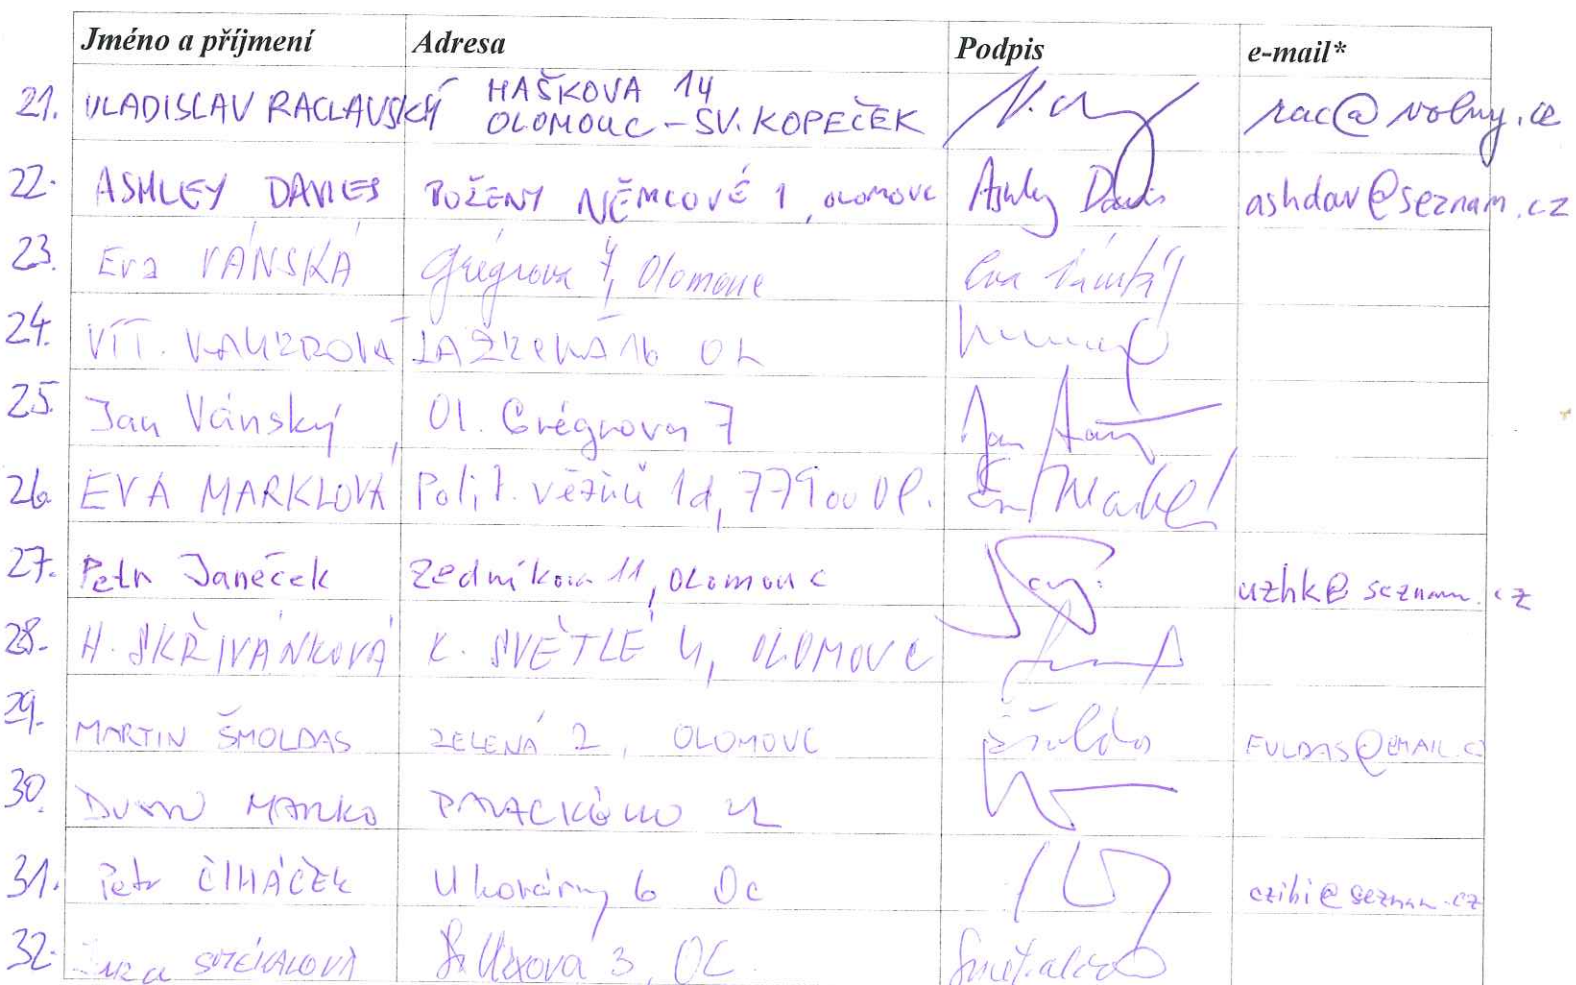 Jméno a příjmení Adresa Podpis e-mail*
21. VLADISLAV RACLAVSKÝ HAŠKOVA 14 rac@volny.cz
OLOMOUC - SV. KOPEČEK
22. ASHLEY DAVIES BOŽENY NĚMCOVÉ 1, OLOMOUC Ashley Davies ashdav@seznam.cz
23. Eva VÁNSKÁ Grégrova 7, Olomouc Eva Vánská
24. VÍT. 16 OL
25. Jan Vánský, Ol. Grégrova 7 Jan
26. EVA MARKLOVÁ Polit. vězňů 1d, 779 00 Ol.
27. Petr Janeček Zedníkova 11, OLOMOUC uzhk@seznam.cz
28. H. SKŘIVÁNKOVÁ K. SVĚTLÉ 4, OLOMOUC
29. MARTIN ŠMOLDAS ZELENÁ 2, OLOMOUC FULDAS@EMAIL.CZ
30. MARKO
31. Petr ČIHÁČEK U kovárny 6 Oc czihi@seznam.cz
32. SMÉKALOVÁ 3, OC